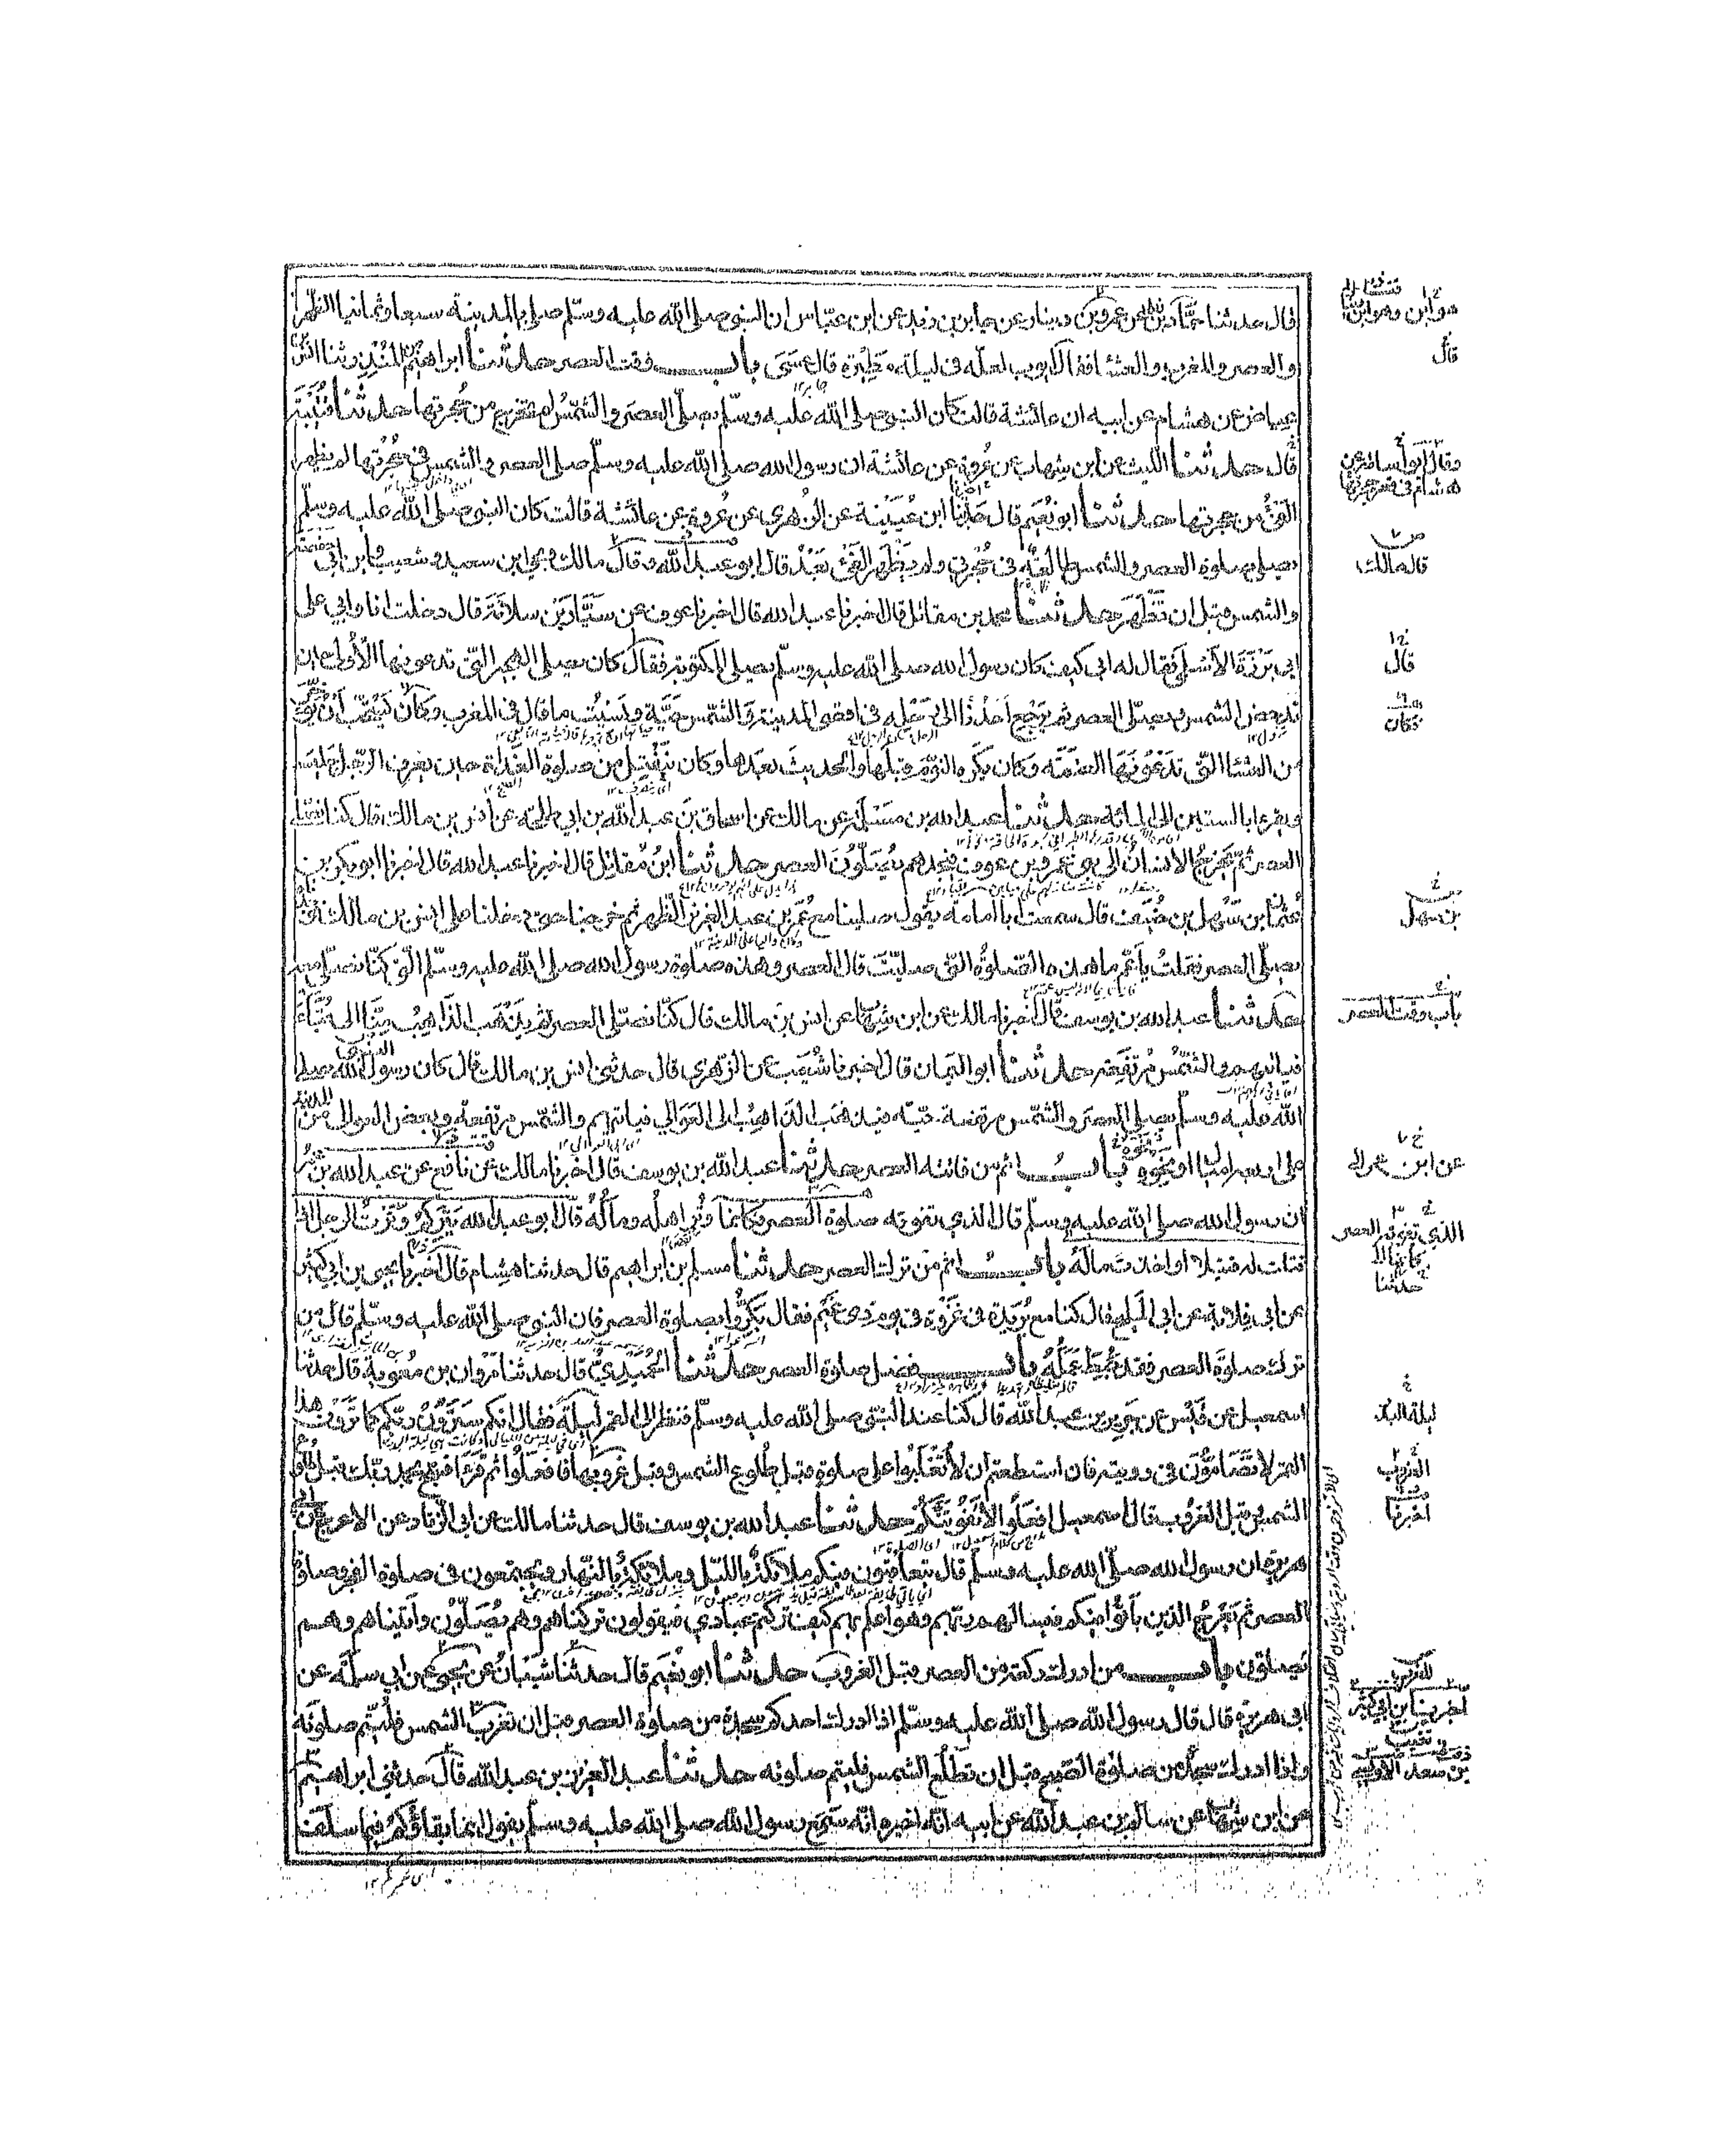 قال حدثنا حماد بن زيد عن عمرو بن دينار عن جابر بن زيد عن ابن عباس ان النبي صلى الله عليه وسلم صلى بالمدينة سبعا وثمانيا الظهر
والعصر والمغرب والعشاء فقال ايوب لعله في ليلة مطيرة قال عسى باب وقت العصر حدثنا ابراهيم بن المنذر ثنا انس بن
عياض عن هشام عن ابيه ان عائشة قالت كان النبي صلى الله عليه وسلم يصلي العصر والشمس لم تخرج من حجرتها حدثنا قتيبة
قال حدثنا الليث عن ابن شهاب عن عروة عن عائشة ان رسول الله صلى الله عليه وسلم صلى العصر والشمس في حجرتها لم يظهر
الفئ من حجرتها حدثنا ابو نعيم قال حدثنا ابن عيينة عن الزهري عن عروة عن عائشة قالت كان النبي صلى الله عليه وسلم
يصلي صلوة العصر والشمس طالعة في حجرتي ولم يظهر الفئ بعد قال ابو عبد الله وقال مالك ويحيى ابن سعيد وشعيب وابن ابي حفصة
والشمس قبل ان تظهر حدثنا محمد بن مقاتل قال اخبرنا عبد الله قال اخبرنا عوف عن سيار بن سلامة قال دخلت انا وابي على
ابي برزة الاسلمي فقال له ابي كيف كان رسول الله صلى الله عليه وسلم يصلي المكتوبة فقال كان يصلي الهجير التي تدعونها الاولى حين
تدحض الشمس ويصلي العصر ثم يرجع احدنا الى رحله في اقصى المدينة والشمس حية ونسيت ما قال في المغرب وكان يستحب ان يؤخر
من العشاء التي تدعونها العتمة وكان يكره النوم قبلها والحديث بعدها وكان ينفتل من صلوة الغداة حين يعرف الرجل جليسه
ويقرء بالستين الى المائة حدثنا عبد الله بن مسلمة عن مالك عن اسحاق بن عبد الله بن ابي طلحة عن انس بن مالك قال كنا نصلي
العصر ثم يخرج الانسان الى بني عمرو بن عوف فيجدهم يصلون العصر حدثنا ابن مقاتل قال اخبرنا عبد الله قال اخبرنا ابو بكر بن
عثمان بن سهل بن حنيف قال سمعت ابا امامة يقول صلينا مع عمر بن عبد العزيز الظهر ثم خرجنا حتى دخلنا على انس بن مالك فوجدناه
يصلي العصر فقلت يا عم ما هذه الصلوة التي صليت قال العصر وهذه صلوة رسول الله صلى الله عليه وسلم التي كنا نصلي معه
حدثنا عبد الله بن يوسف قال اخبرنا مالك عن ابن شهاب عن انس بن مالك قال كنا نصلي العصر ثم يذهب الذاهب منا الى قباء
فياتيهم والشمس مرتفعة حدثنا ابو اليمان قال اخبرنا شعيب عن الزهري قال حدثني انس بن مالك قال كان رسول الله صلى
الله عليه وسلم يصلي العصر والشمس مرتفعة حية فيذهب الذاهب الى العوالي فياتيهم والشمس مرتفعة وبعض العوالي من المدينة
على اربعة اميال او نحوه باب اثم من فاتته العصر حدثنا عبد الله بن يوسف قال اخبرنا مالك عن نافع عن عبد الله بن عمر
ان رسول الله صلى الله عليه وسلم قال الذي تفوته صلوة العصر فكانما وتر اهله وماله قال ابو عبد الله يتركم وترت الرجل اذا
قتلت له قتيلا او اخذت ماله باب اثم من ترك العصر حدثنا مسلم بن ابراهيم قال حدثنا هشام قال اخبرنا يحيى بن ابي كثير
عن ابي قلابة عن ابي المليح قال كنا مع بريدة في غزوة في يوم ذي غيم فقال بكروا بصلوة العصر فان النبي صلى الله عليه وسلم قال من
ترك صلوة العصر فقد حبط عمله باب فضل صلوة العصر حدثنا الحميدي قال حدثنا مروان بن معوية قال حدثنا
اسمعيل عن قيس عن جرير بن عبد الله قال كنا عند النبي صلى الله عليه وسلم فنظر الى القمر ليلة فقال انكم سترون ربكم كما ترون هذا
القمر لا تضامون في رويته فان استطعتم ان لا تغلبوا على صلوة قبل طلوع الشمس وقبل غروبها فافعلوا ثم قرأ فسبح بحمد ربك قبل طلوع
الشمس وقبل الغروب قال اسمعيل افعلوا لا تفوتنكم حدثنا عبد الله بن يوسف قال حدثنا مالك عن ابي الزناد عن الاعرج عن ابي
هريرة ان رسول الله صلى الله عليه وسلم قال يتعاقبون فيكم ملائكة بالليل وملائكة بالنهار ويجتمعون في صلوة الفجر وصلوة
العصر ثم يعرج الذين باتوا فيكم فيسالهم ربهم وهو اعلم بهم كيف تركتم عبادي فيقولون تركناهم وهم يصلون واتيناهم وهم
يصلون باب من ادرك ركعة من العصر قبل الغروب حدثنا ابو نعيم قال حدثنا شيبان عن يحيى عن ابي سلمة عن
ابي هريرة قال قال رسول الله صلى الله عليه وسلم اذا ادرك احدكم سجدة من صلوة العصر قبل ان تغرب الشمس فليتم صلوته
واذا ادرك سجدة من صلوة الصبح قبل ان تطلع الشمس فليتم صلوته حدثنا عبد العزيز بن عبد الله قال حدثني ابراهيم
عن ابن شهاب عن سالم بن عبد الله عن ابيه انه اخبره انه سمع رسول الله صلى الله عليه وسلم يقول انما بقاؤكم فيما سلف
هو ابن وهو ابن
قال
وقال ابو اسامة عن
هشام في قعر حجرتها
قال مالك
قال
وكان
بن سهل
باب وقت العصر
عن ابن عمر
الذي تفوته العصر
كانما
حدثنا
ليلة البدر
الغروب
اخبرنا
بن ابي كثير
بن سعد الاويسي